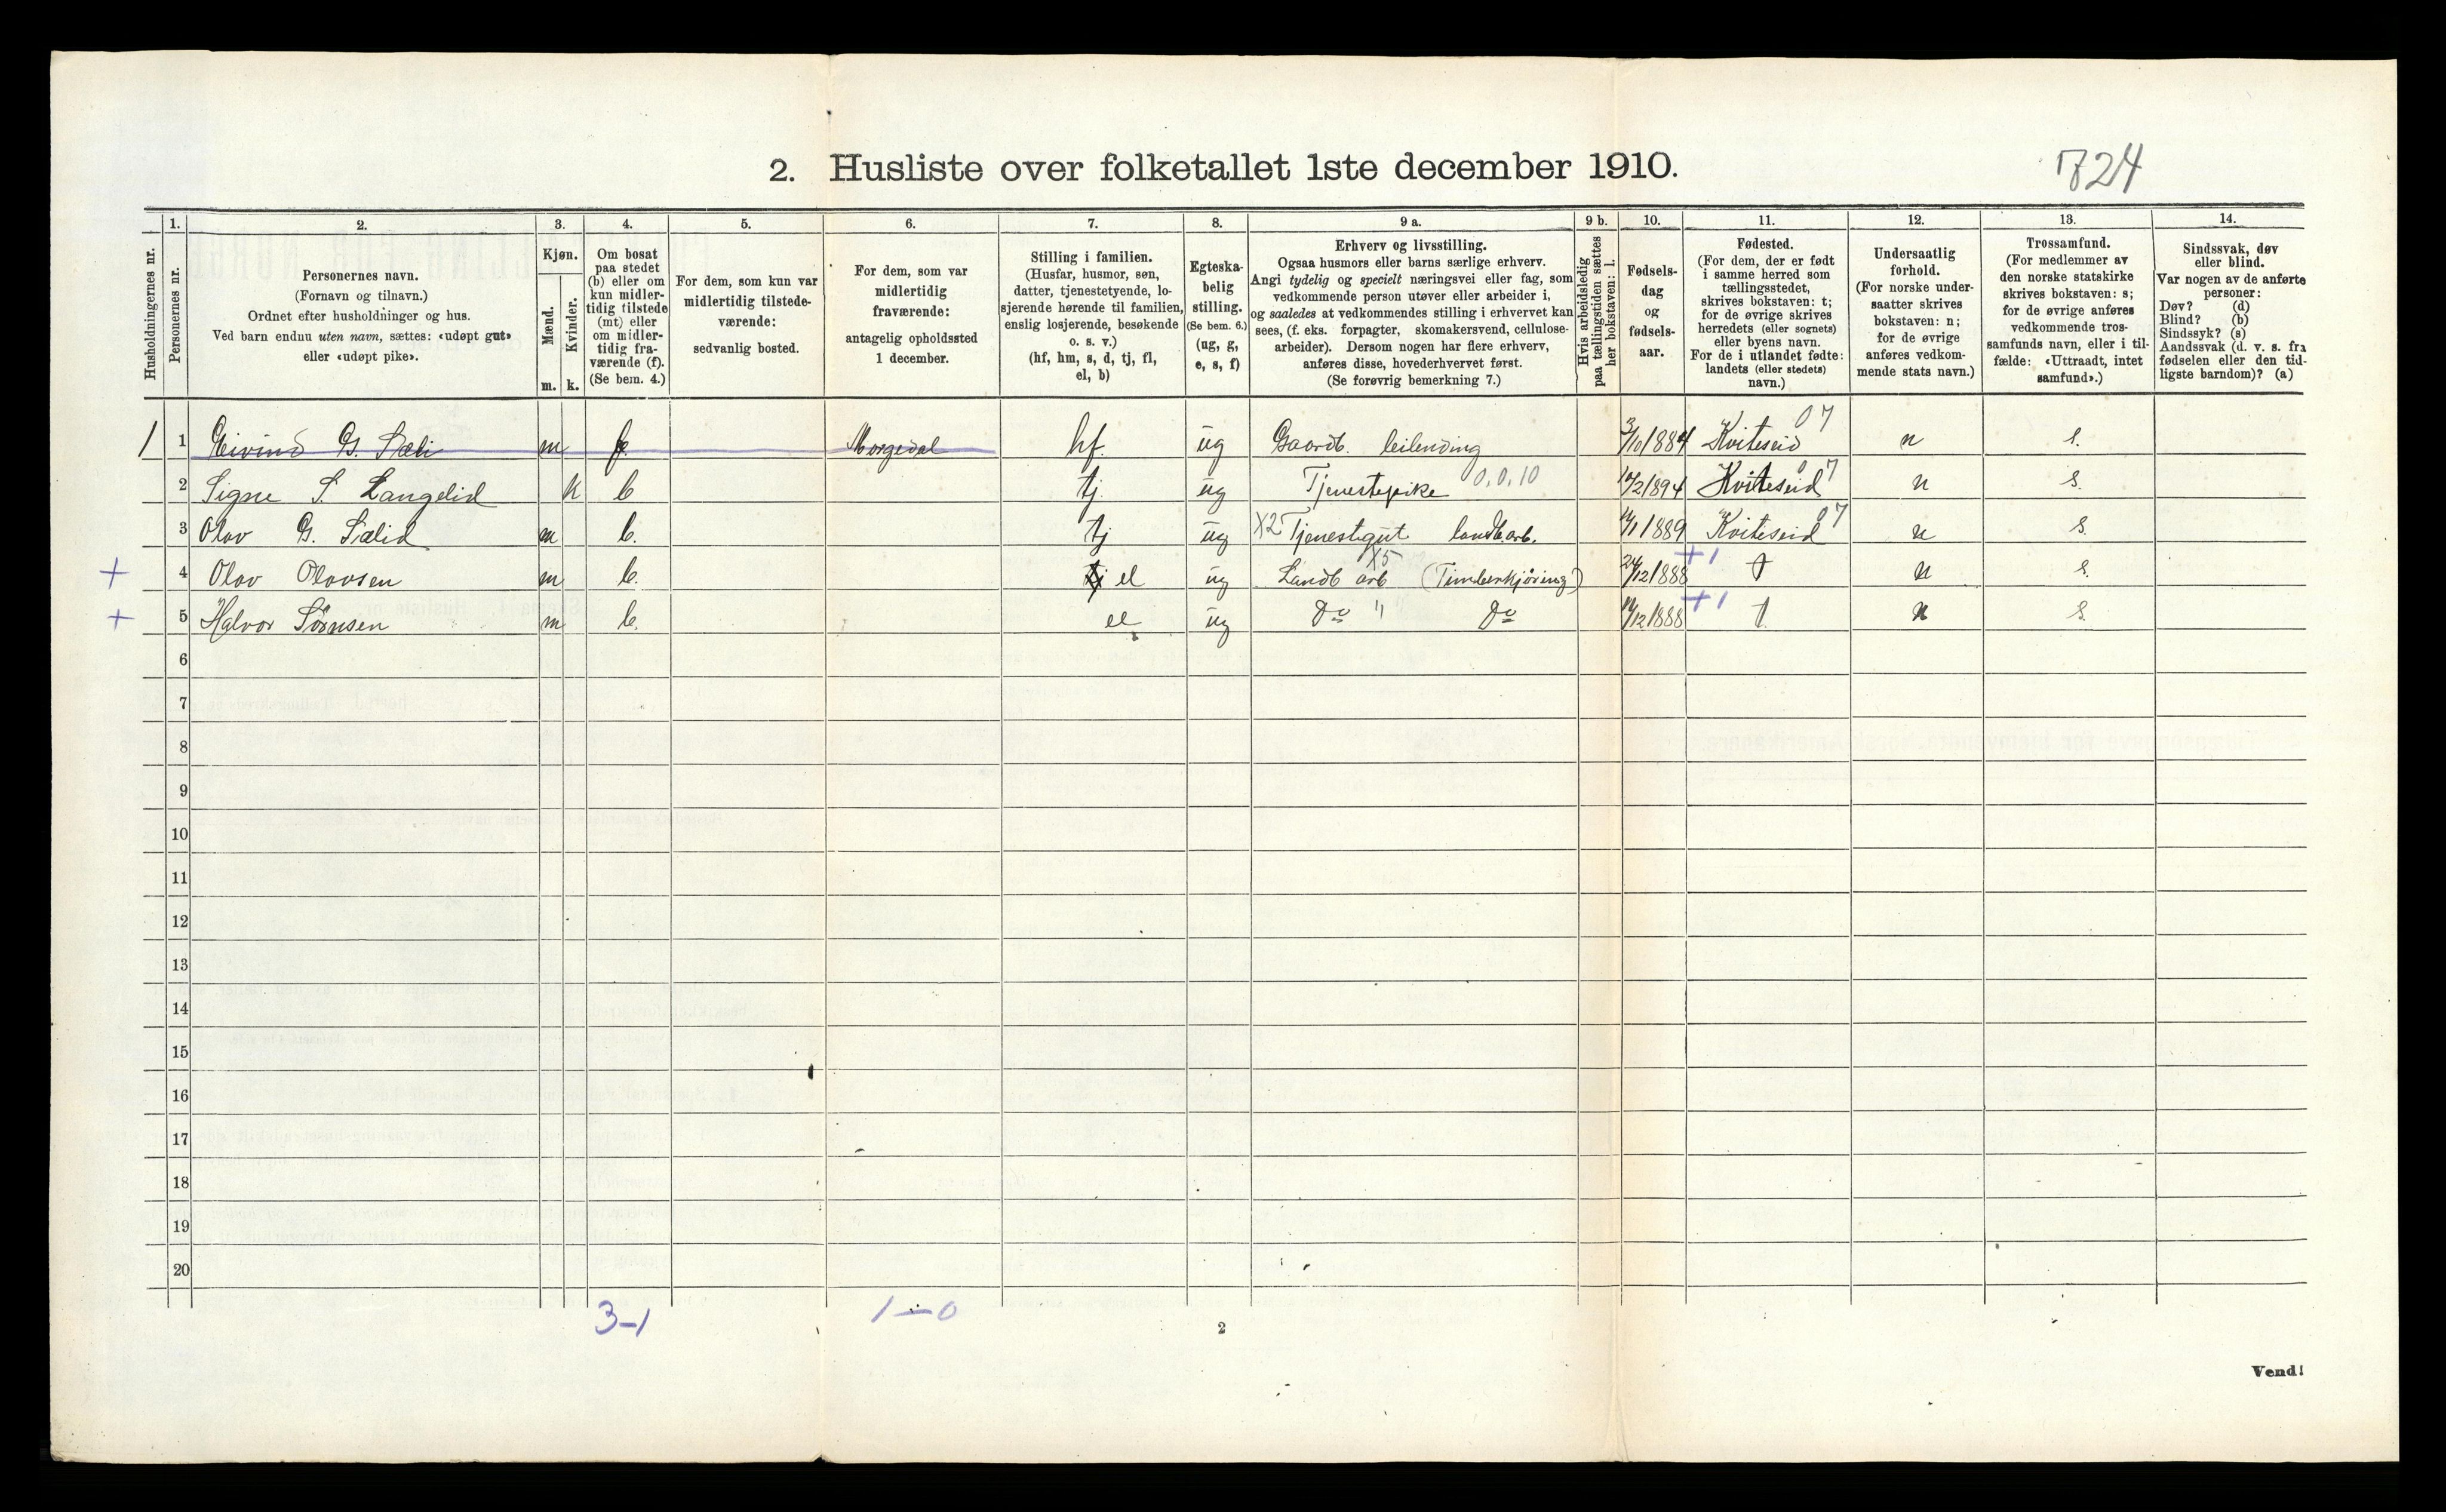 2. Husliste over folketallet 1ste december 1910.
724
Husholdningernes nr.
1.
Personernes nr.
2.
Personernes navn.
(Fornavn og tilnavn.)
Ordnet efter husholdninger og hus.
Ved barn endnu uten navn, sættes: «udøpt gut»
eller «udøpt pike».
3.
Kjøn.
Mænd.
Kvinder.
m. k.
4.
Om bosat
paa stedet
(b) eller om
kun midler-
tidig tilstede
(mt) eller
om midler-
tidig fra-
værende (f).
(Se bem. 4.)
5.
For dem, som kun var
midlertidig tilstede-
værende:
sedvanlig bosted.
6.
For dem, som var
midlertidig
fraværende:
antagelig opholdssted
1 december.
7.
Stilling i familien.
(Husfar, husmor, søn,
datter, tjenestetyende, lo-
sjerende hørende til familien,
enslig losjerende, besøkende
o. s. v.)
(hf, hm, s, d, tj, fl,
el, b)
8.
Egteska-
belig
stilling.
(Se bem. 6.)
(ug, g,
e, s, f)
9 a.
Erhverv og livsstilling.
Ogsaa husmors eller barns særlige erhverv.
Angi tydelig og specielt næringsvei eller fag, som
vedkommende person utøver eller arbeider i,
og saaledes at vedkommendes stilling i erhvervet kan
sees, (f. eks. forpagter, skomakersvend, cellulose-
arbeider). Dersom nogen har flere erhverv,
anføres disse, hovederhvervet først.
(Se forøvrig bemerkning 7.)
9 b.
Hvis arbeidsledig
paa tællingstiden sættes
her bokstaven: l.
10.
Fødsels-
dag
og
fødsels-
aar.
11.
Fødested.
(For dem, der er født
i samme herred som
tællingsstedet,
skrives bokstaven: t;
for de øvrige skrives
herredets (eller sognets)
eller byens navn.
For de i utlandet fødte:
landets (eller stedets)
navn.)
12.
Undersaatlig
forhold.
(For norske under-
saatter skrives
bokstaven: n;
for de øvrige
anføres vedkom-
mende stats navn.)
13.
Trossamfund.
(For medlemmer av
den norske statskirke
skrives bokstaven: s;
for de øvrige anføres
vedkommende tros-
samfunds navn, eller i til-
fælde: «Uttraadt, intet
samfund».)
14.
Sindssvak, døv
eller blind.
Var nogen av de anførte
personer:
Døv? (d)
Blind? (b)
Sindssyk? (s)
Aandssvak (d. v. s. fra
fødselen eller den tid-
ligste barndom)? (a)
1 1 Eivind G. Sæli m f Morgedal hf. ug Gaardb. leilending 3/10 1884 Kviteseid 07 n s.
2 Signe S. Langelid k b tj. ug Tjenestepike 0,0,10 /2 1894 Kviteseid 07 n s.
3 Olav G. Sælid m b. tj ug X2 Tjenestegut landb.arb. /1 1889 Kviteseid 07 n s.
+ 4 Olav Olavsen m b. tj el ug Landb arb X5 (Timberkjøring) 24/12 1888 +1 t n s.
+ 5 Halvor Sørnsen m b. el ug Do " Do /12 1888 +1 t. n s.
6
7
8
9
10
11
12
13
14
15
16
17
18
19
20
3-1
1-0
2
Vend!